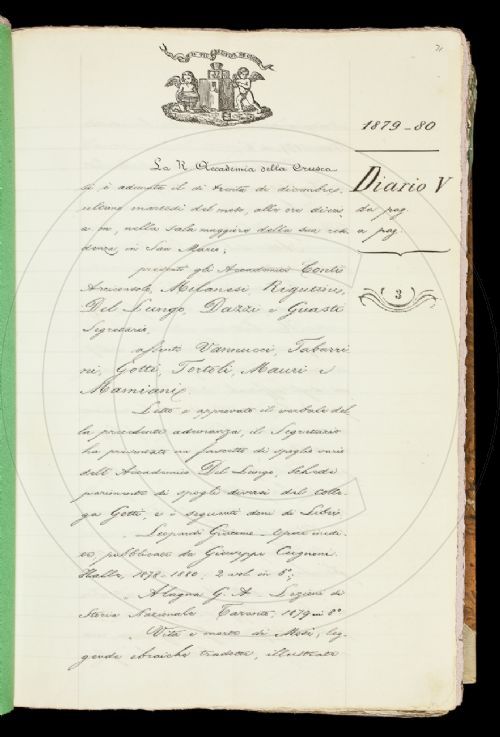 71
1879-80
Diario V
da pag
a pag
3
La R. Accademia della Crusca
si è adunata il dì trenta di dicembre,
ultimo martedì del mese, alle ore dieci
a. m., nella sala maggiore della sua resi-
denza, in San Marco;
presenti gli Accademici Conti
Arciconsolo, Milanesi, Rigutini,
Del Lungo, Dazzi e Guasti
Segretario,
assenti Vannucci, Tabarri
ni, Gotti, Tortoli, Mauri e
Mamiani.
Letto e approvato il verbale del
la precedente adunanza, il Segretario
ha presentato un fascetto di spogli varii
dell'Accademico Del Lungo, Schede
parimente di spogli diversi del colle-
ga Gotti, e i seguenti doni di Libri:
Leopardi Giacomo - Opere inedi-
te, pubblicate da Giuseppe Cugnoni.
Halle, 1878-1880, 2 vol. in 8°;
Alagna G. A. - Lezioni di
Storia Nazionale. Taranto, 1879 in 8°
Vita e morte di Mosè, leg-
gende ebraiche tradotte, illustrate